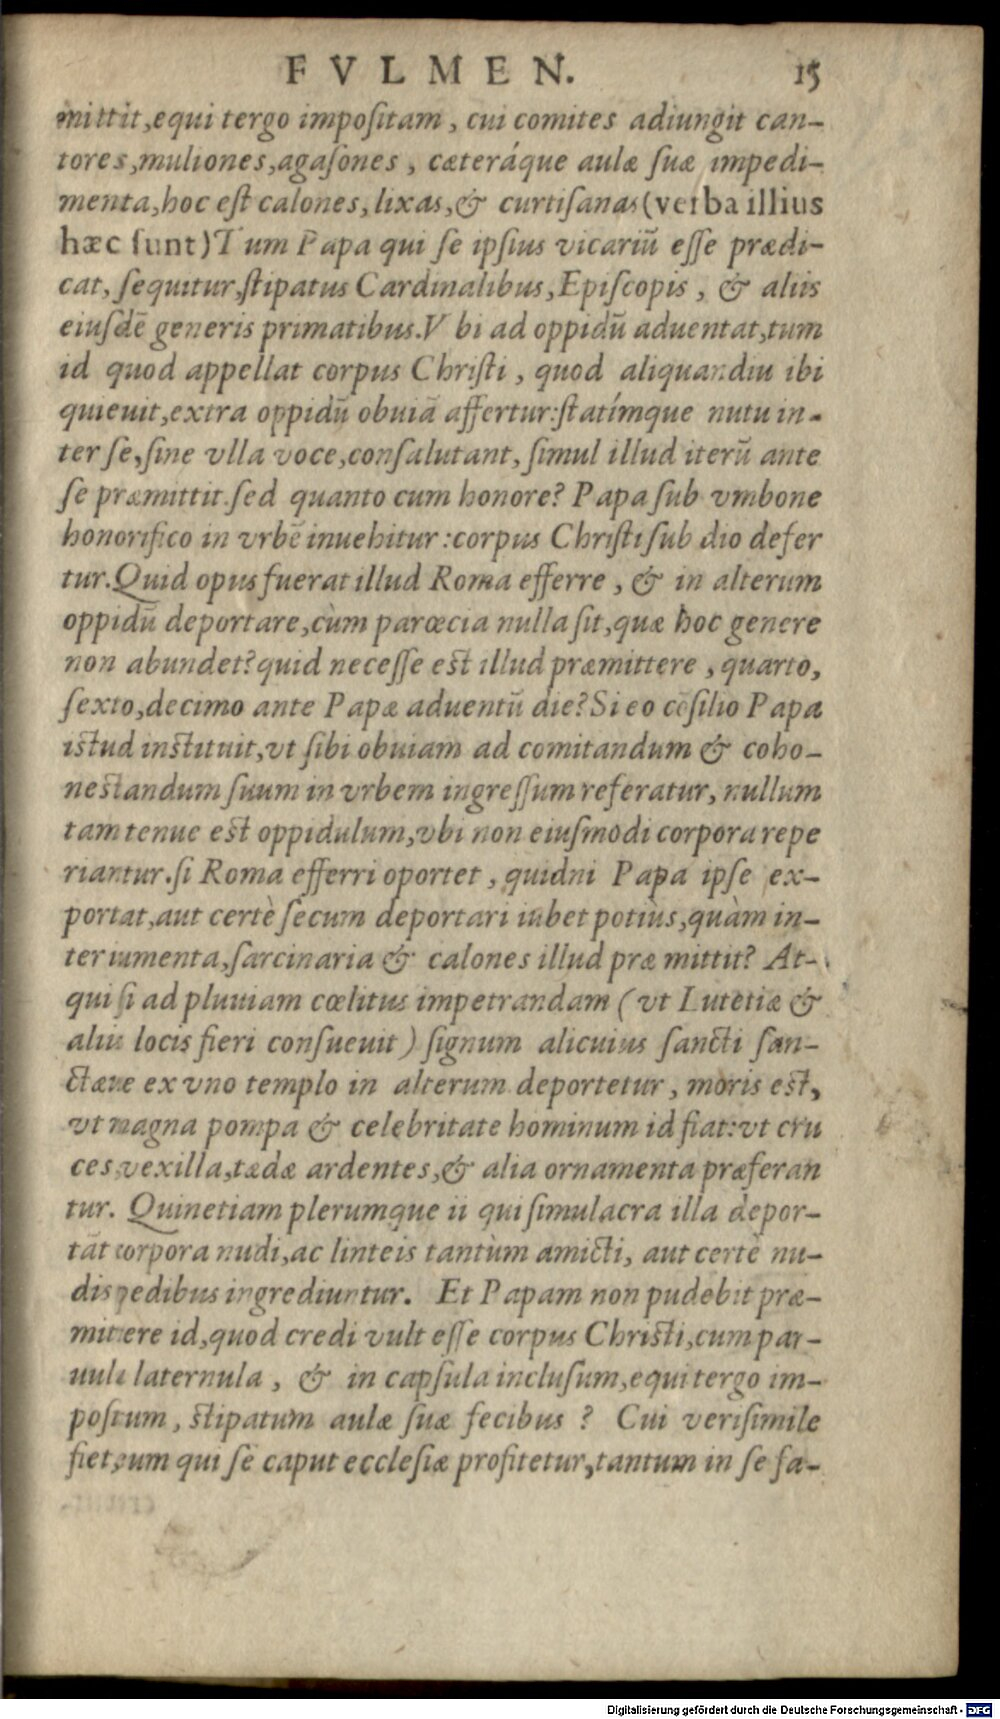 FVLMEN. 15
mittit, equi tergo impoſitam, cui comites adiungit can-
tores, muliones, agaſones, cæteráque aulæ ſuæ impedi-
menta, hoc eſt calones, lixas, & curtiſanas (verba illius
hæc ſunt) Tum Papa qui ſe ipſius vicariũ eſſe prædi-
cat, ſequitur, ſtipatus Cardinalibus, Epiſcopis, & aliis
eiuſdẽ generis primatibus. Vbi ad oppidũ aduentat, tum
id quod appellat corpus Chriſti, quod aliquandiu ibi
quieuit, extra oppidũ obuiã affertur: ſtatímque nutu in-
ter ſe, ſine vlla voce, conſalutant, ſimul illud iterũ ante
ſe præmittit. ſed quanto cum honore? Papa ſub vmbone
honorifico in vrbẽ inuehitur: corpus Chriſti ſub dio defer
tur. Quid opus fuerat illud Roma efferre, & in alterum
oppidũ deportare, cùm parœcia nulla ſit, quæ hoc genere
non abundet? quid neceſſe est illud præmittere, quarto,
ſexto, decimo ante Papæ aduentũ die? Si eo cõſilio Papa
iſtud inſtituit, vt ſibi obuiam ad comitandum & coho-
nestandum ſuum in vrbem ingreſſum referatur, nullum
tam tenue est oppidulum, vbi non eiuſmodi corpora repe
riantur. ſi Roma efferri oportet, quidni Papa ipſe ex-
portat, aut certè ſecum deportari iubet potiùs, quàm in-
ter iumenta, ſarcinaria & calones illud præmittit? At-
qui ſi ad pluuiam cœlitus impetrandam (vt Lutetiæ &
aliis locis fieri conſueuit) ſignum alicuius ſancti ſan-
ctæue ex vno templo in alterum deportetur, moris est,
vt magna pompa & celebritate hominum id fiat: vt cru
ces, vexilla, tædæ ardentes, & alia ornamenta præferan
tur. Quinetiam plerumque ii qui ſimulacra illa depor-
tãt corpora nudi, ac linteis tantùm amicti, aut certè nu-
dis pedibus ingrediuntur. Et Papam non pudebit præ-
mittere id, quod credi vult eſſe corpus Chriſti, cum par-
uula laternula, & in capſula incluſum, equi tergo im-
poſitum, ſtipatum aulæ ſuæ fecibus? Cui veriſimile
fiet, eum qui ſe caput eccleſiæ profitetur, tantum in ſe fa-
Digitalisierung gefördert durch die Deutsche Forschungsgemeinschaft - DFG